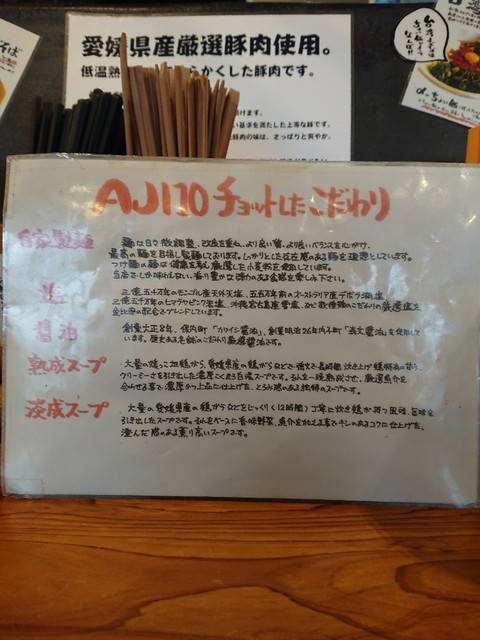 愛媛県産厳選豚肉使用。
らかくした豚肉です。
い基準を満たした上等な豚です。
豚肉の味は、さっぱりと爽やか。
AJI70 チョットしたこだわり
自家製麺
麺は日々微調整、改良を重ね、より良い質、より良いバランスを心がけ、
最高の麺を目指し製麺しております。しっかりとした存在感のある麺を理想としています。
つけ麺の麺は健康を考え厳選した小麦粉を使用しています。
当店でしか味わえない、香り豊かな弾力のある食感を楽しみ下さい。
塩
三億五千万年のモンゴル産天外天塩、五五万年前のオーストラリア産デボラ湖塩、
三億五千万年のヒマラヤピンク岩塩、沖縄宮古島産雪塩、など数種類のこだわりの厳選塩を
黄金比率の配合でブレンドしています。
醤油
創業大正8年、保内町「カワイシ醤油」、創業明治26年内子町「森文醤油」を使用して
います。歴史ある老舗のこだわり厳選醤油です。
熟成スープ
クリーミーさを引き出した濃厚こくまろ白湯スープです。さらに一晩熟成させ、厳選魚介を
合わせる事で濃厚かつ上品に仕上げた、とろみ感のある独特のスープです。
淡成スープ
大量の愛媛県産の鶏ガラなどをじっくり12時間、丁寧に炊き鶏が持つ風味、旨味を
引き出したスープです。さらにベースに香味野菜、魚介を加える事でキレのあるコクに仕上げた、
澄んだ感のある薫り高いスープです。